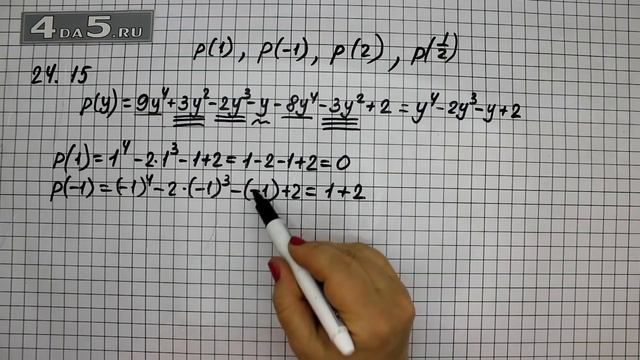 4DA5.RU
p(1), p(-1), p(2), p(1/2)
24.15
p(y) = 9y⁴+3y²-2y³-y-8y⁴-3y²+2 = y⁴-2y³-y+2
p(1) = 1⁴-2·1³-1+2 = 1-2-1+2 = 0
p(-1) = (-1)⁴-2·(-1)³-(-1)+2 = 1+2